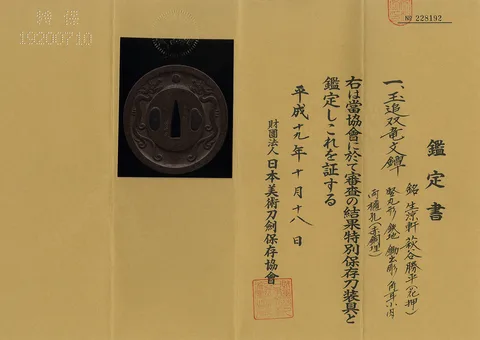 No 228192
鑑定書
一、玉追双竜文鐔
銘 生涼軒 萩谷勝平(花押)
竪丸形 鉄地 鋤出彫 角耳小肉
両櫃孔(赤銅埋)
右は當協會に於て審査の結果特別保存刀装具と
鑑定しこれを証する
平成十九年十月十八日
財團法人 日本美術刀劍保存協會
特保
19200710